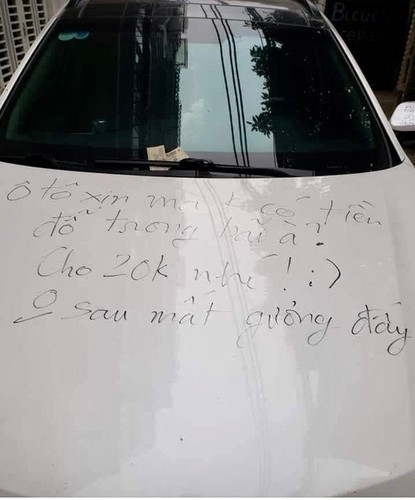 Ô tô xịn mà k có tiền
đỗ trong bãi à?
Cho 20k nhé! :)
Ở sau mất gương đấy